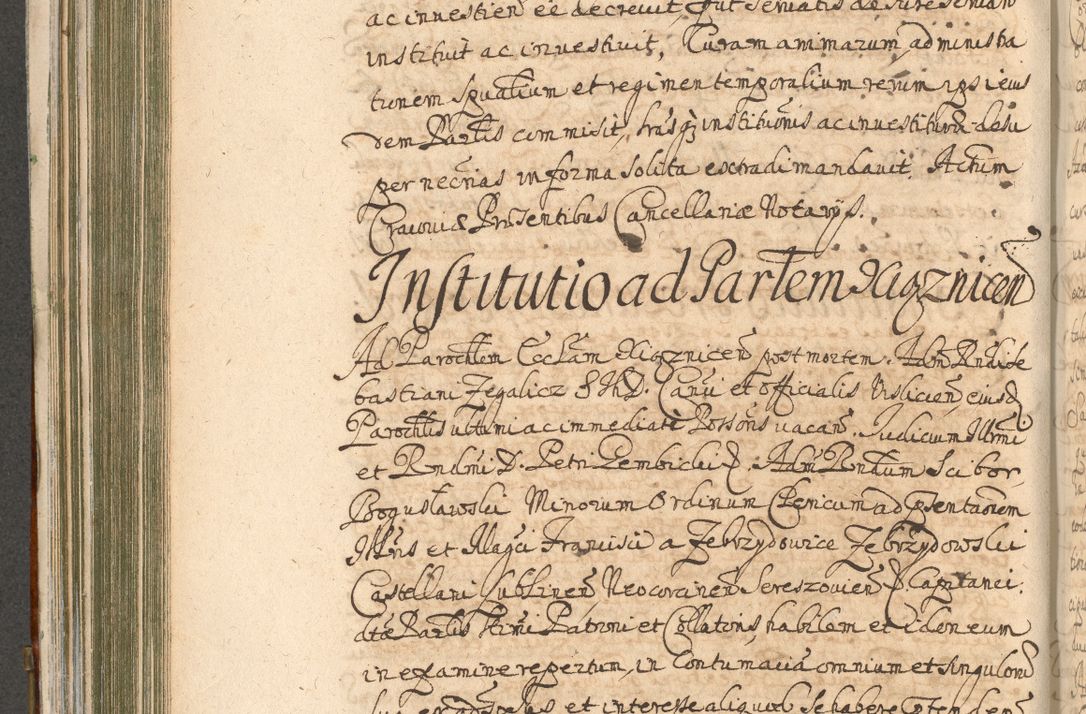 ac investien̄ eē decrevit put Servatis de Jure Servan
instituit ac investivit, Curam animarum, administra
tionem spūalium et regimen temporalium rerum ipsi eius
dem Parłis commisit, Lras institutionis ac investiturae desu
per necrias in forma solita extradi mandavit. Actum
Cracoviae Praesentibus Cancellariae Notarijs.
Institutio ad Parłem Xiąznicen̄
Ad Parochłem Eccłam Xiąznicen̄ post mortem Adm Rndi Se
bastiani Zegalicz Canci et officialis Vislicien̄, eiusd
Parochłis ultimi ac immediati Possōris vacan̄. Judicium Illrmi
et Rndmi D. Petri Gembicki D. Adm Rndum Scibor
Bogusławski Minorum Ordinum Clericum ad pntaōnem
Illris et Magci Francisci a Zebrzydowice Zebrzydowski
Castellani Lublinen̄ Neocorcinen̄ Sereszovien̄ Capitanei
dtae Parłis Patroni et Collatoris, habilem et idoneum
in examine repertum, in contumaciā omnium et singulorū
et interesse aliquod Se habere